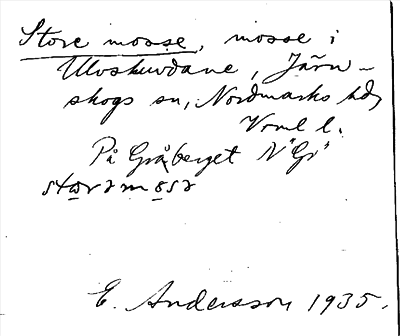 Store mosse, mosse i
Ulvskuvdane, Järn-
skogs sn, Nordmarks hd,
Vrml l.
På Gråberget N "Gr"
E. Andersson 1935.